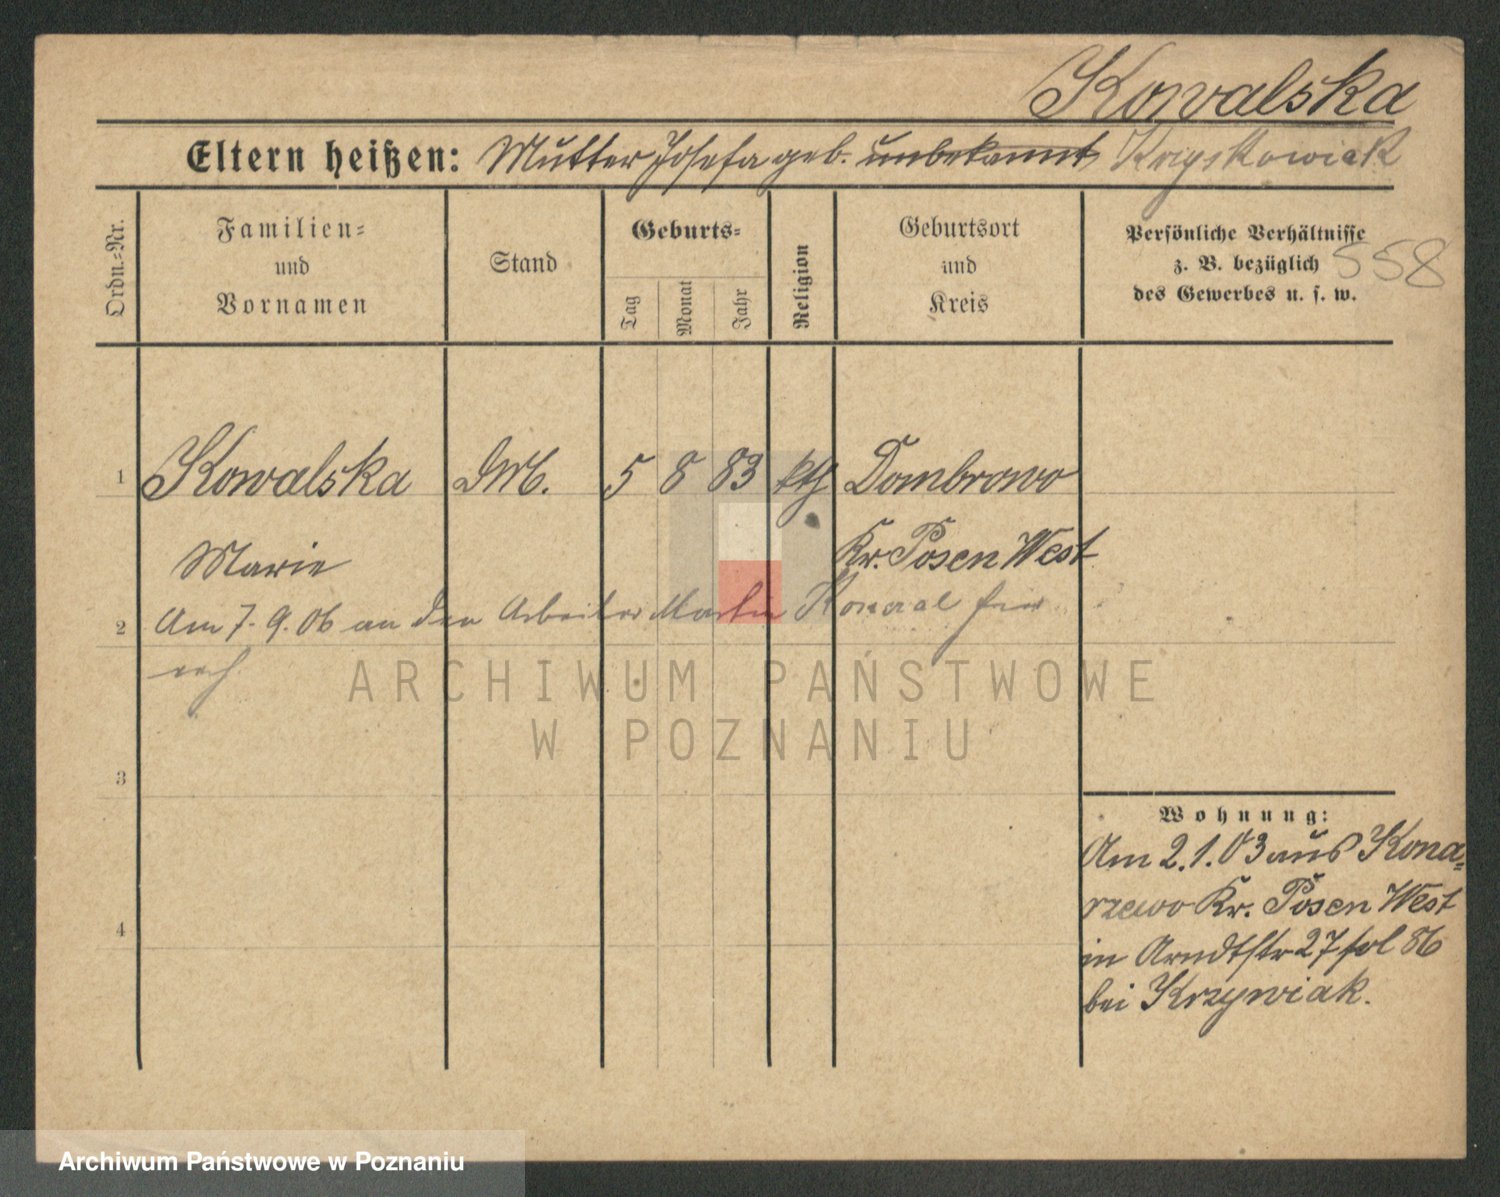 Kowalska
Eltern heißen: Mutter Josefa geb. unbekannt
Ordn.-Nr.
Familien-
und
Vornamen
Stand
Geburts-
Tag
Monat
Jahr
Religion
Geburtsort
und
Kreis
Persönliche Verhältnisse
z. B. bezüglich
des Gewerbes u. s. w.
558
1 Kowalska 5 8 83 kth Dombrowo
Marie Kr. Posen West
2 Am 7. 9. 06 an den Arbeiter Martin
ARCHIWUM PAŃSTWOWE
W POZNANIU
3
4
Wohnung:
Am 2.1.03 aus Kona-
rzewo Kr. Posen West
in Arndtstr 27 fol 86
bei Krzywiak.
Archiwum Państwowe w Poznaniu